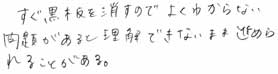 すぐ黒板を消すのでよくわからない
問題があると理解できないまま進めら
れることがある。